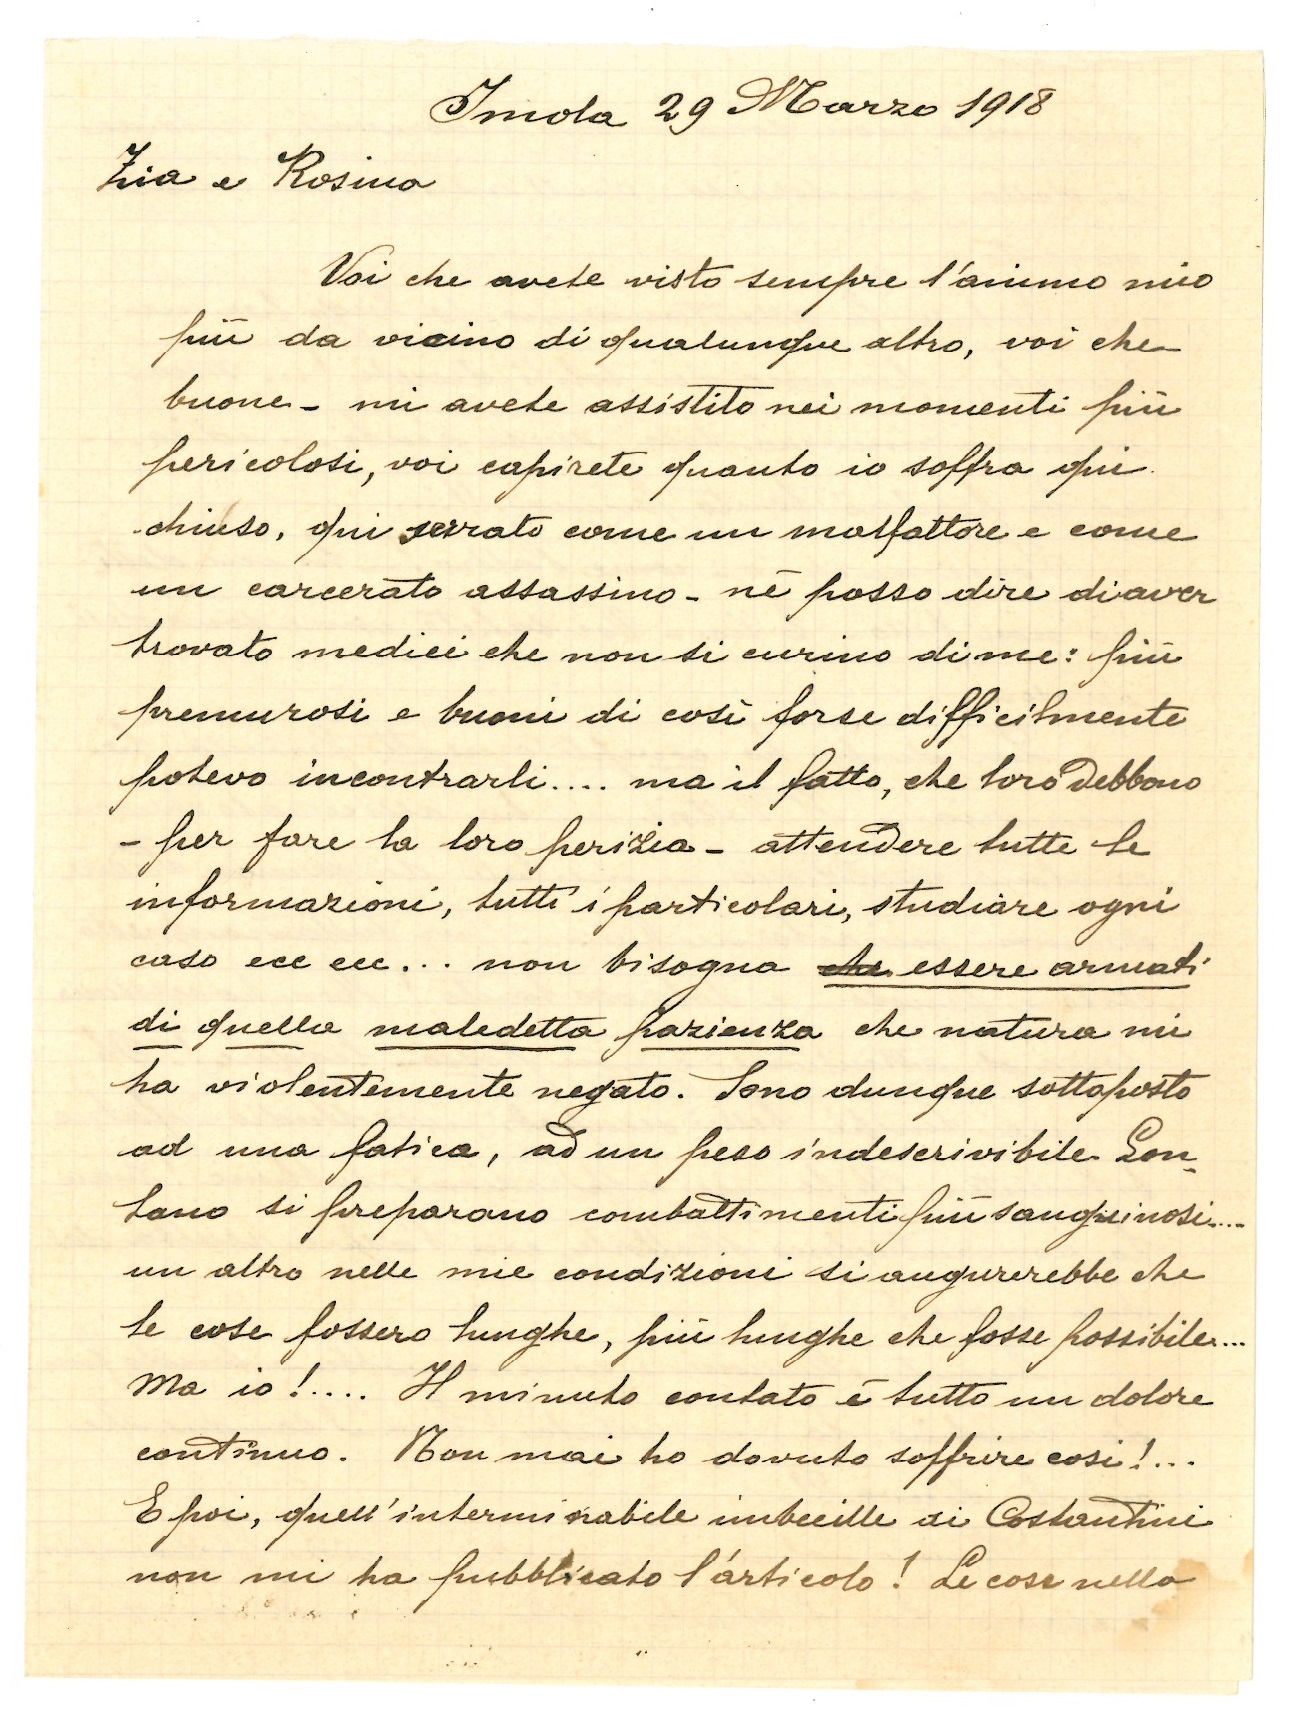 Imola 29 Marzo 1918
Zia e Rosina
Voi che avete visto sempre l'animo mio
più da vicino di qualunque altro, voi che
buone - mi avete assistito nei momenti più
pericolosi, voi capirete quanto io soffra qui
chiuso, qui serrato come un malfattore e come
un carcerato assassino - nè posso dire di aver
trovato medici che non si curino di me: più
premurosi e buoni di così forse difficilmente
potevo incontrarli.... ma il fatto, che loro debbono
- per fare la loro perizia - attendere tutte le
informazioni, tutti i particolari, studiare ogni
caso ecc ecc... non bisogna che essere armati
di quella maledetta pazienza che natura mi
ha violentemente negato. Sono dunque sottoposto
ad una fatica, ad un peso indescrivibile. Lon-
tano si preparano combattimenti più sanguinosi....
un altro nelle mie condizioni si augurerebbe che
le cose fossero lunghe, più lunghe che fosse possibile....
Ma io!.... Il minuto contato è tutto un dolore
continuo. Non mai ho dovuto soffrire così!...
E poi, quell'interminabile imbecille di Costantini
non mi ha pubblicato l'articolo! Le cose nella